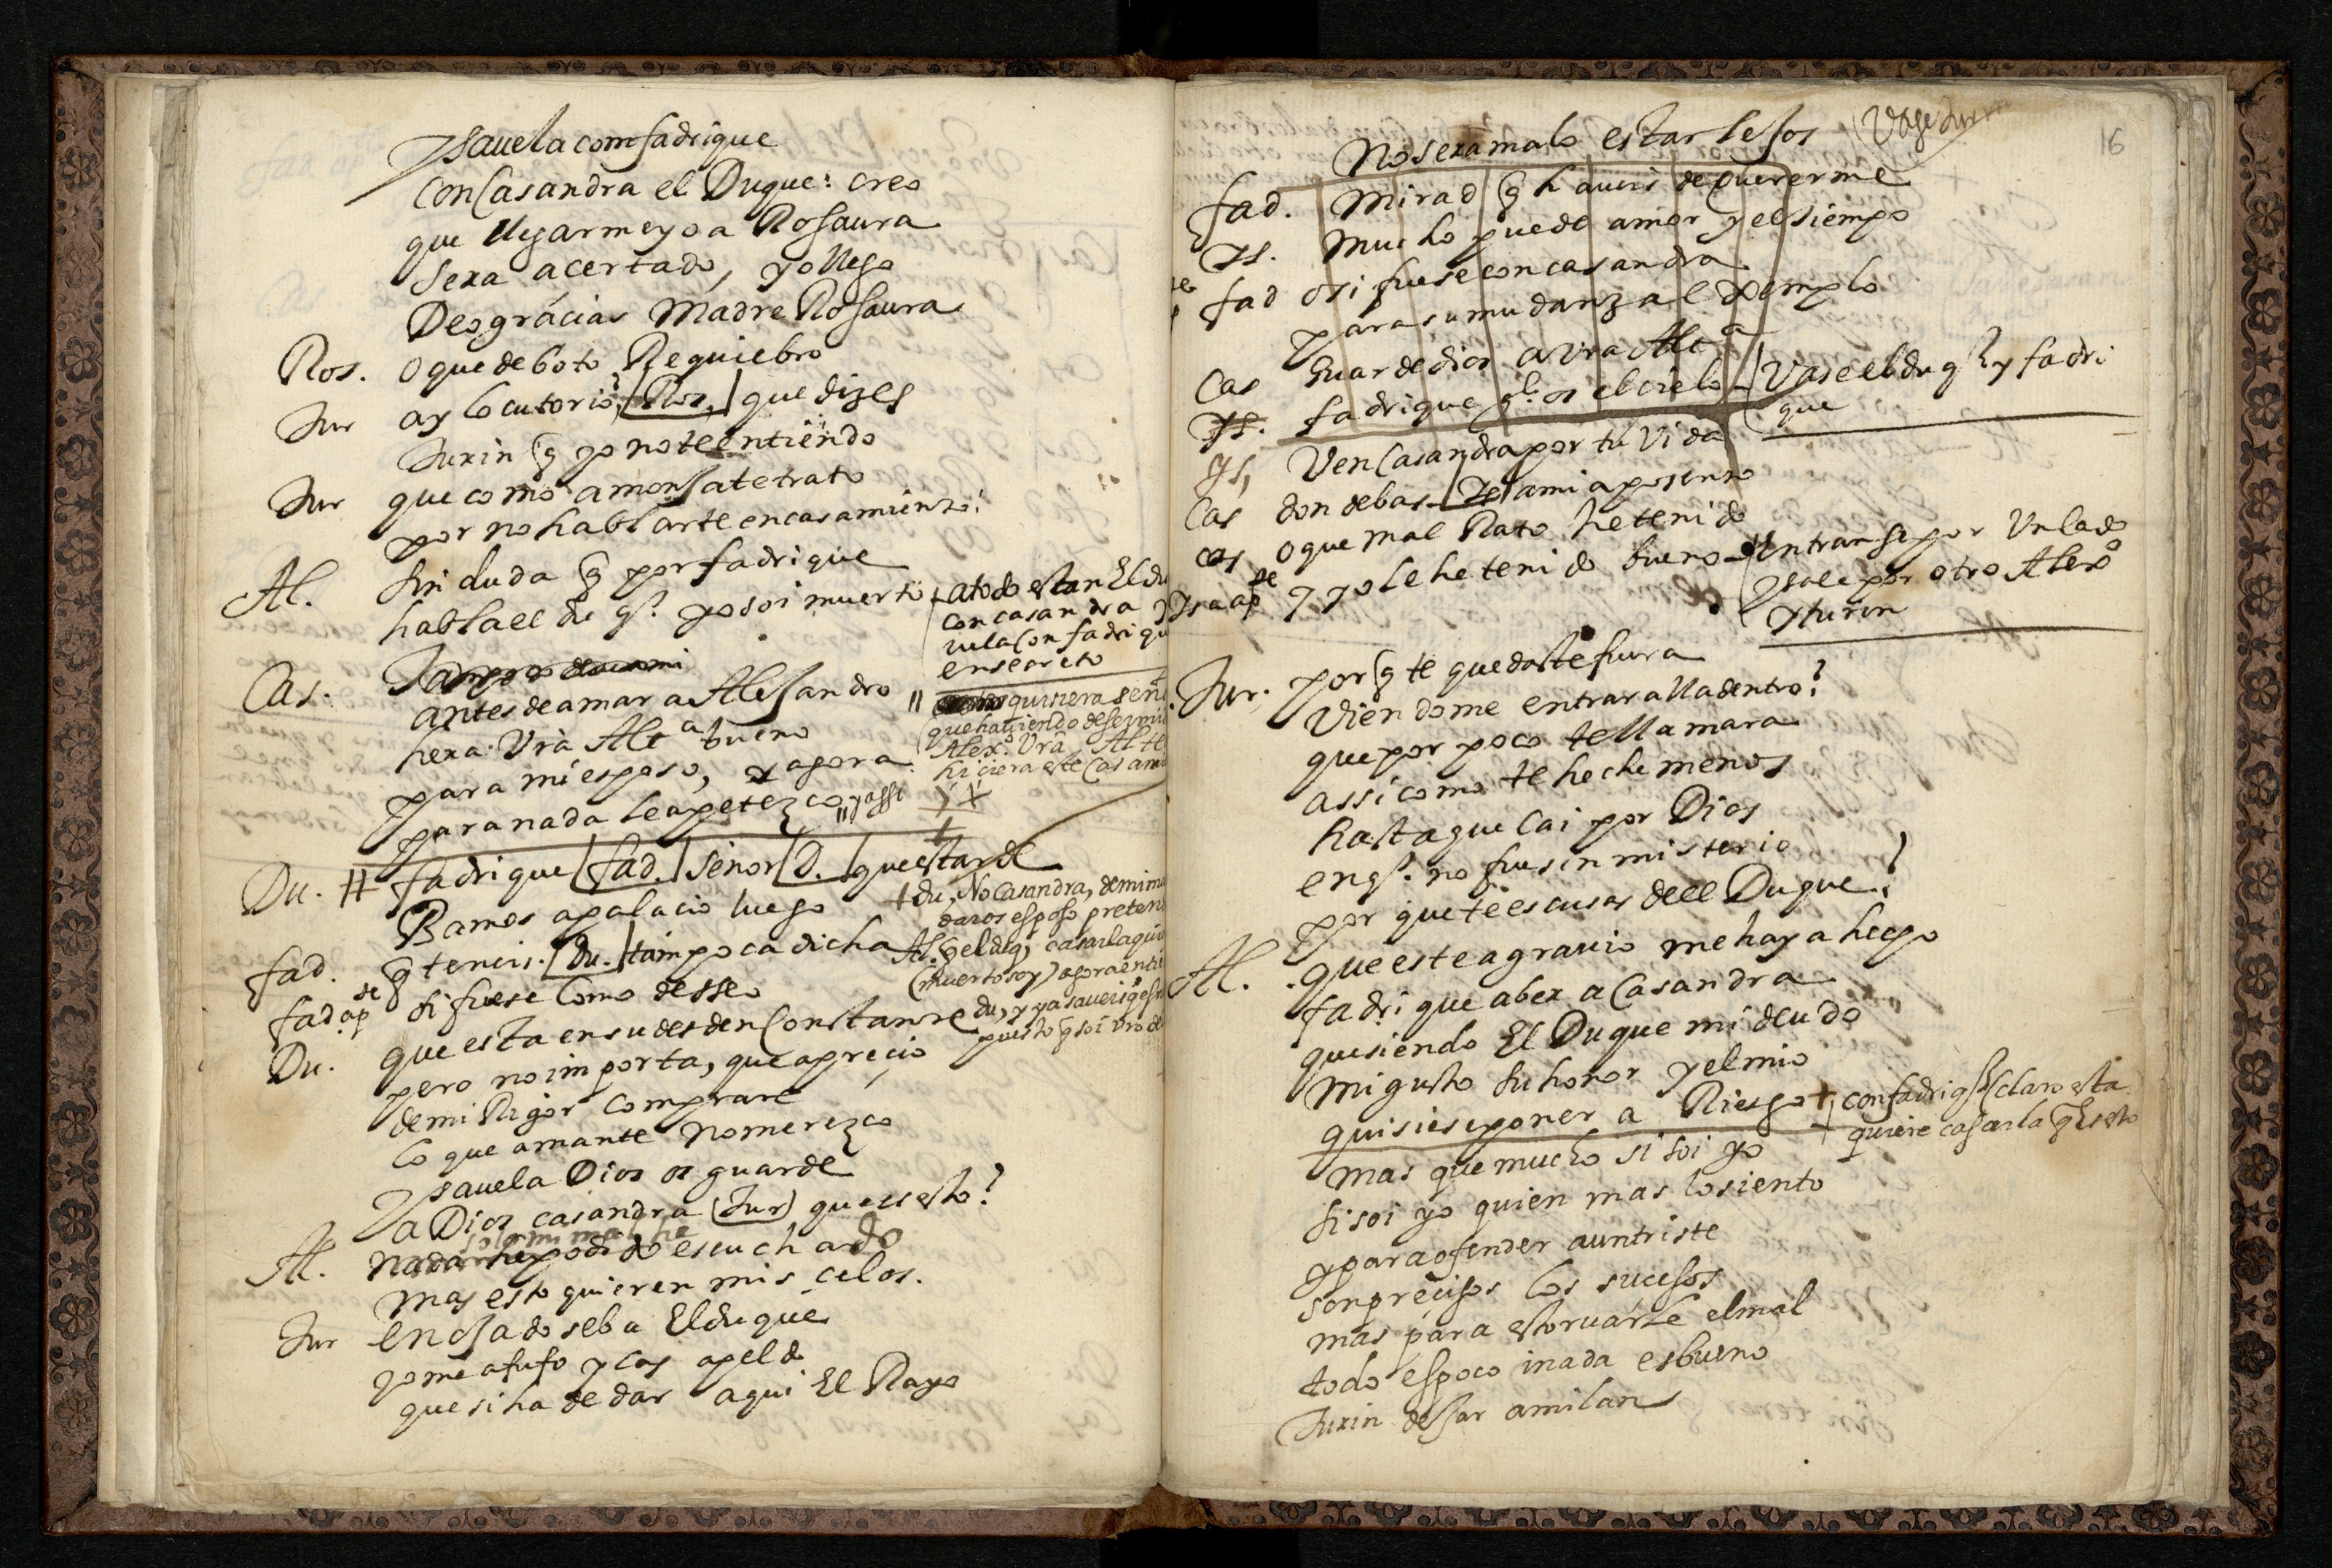 Ysauela com fadrique
con Casandra el Duque: creo
que llegarme yo a Rosaura
sera acertado, yo llego
Deogracias Madre Rosaura
Ros. O que deboto Requiebro
Tur ay locutorio, Ros. que dizes
Turin q̃ yo no te entiendo
Tur que como a monja te trato
por no hablarte en casamiento!
Al. sin duda q̃ por fadrique
habla el duq.e yo soi muerto
a todo estan El du
con casandra y
uela con fadriqu
en secreto
Cas. antes de amar a Alesandro
hera Vra Alt.a bueno
para mi esposo, y agora
para nada le apetezco " y assi
" quisiera señ
que haziendo
Alex.o Vra Alte
hiciera este Casam
Du. # fadrique fad. señor D. que es tarde
Bamos a palacio luego
+ du, No Casandra, de mi ma
daros esposo preten
fad. q̃ teneis. Du. tampoca dicha
Al. q̃ el duq, casarla qui
(muerto soy) agora enti
fad ap.te si fuese como desseo
Du. que esta en su desden Constante
du, y ya saueis q̃
puesto q̃ soi vro
pero no importa, que a precio
de mi Rigor comprare
lo que amante no merezco
Ysauela Dios os guarde
a Dios casandra (Tur) que es esto?
solo mi mal he
Al. nada he podido escuchado
mas esto quieren mis celos.
Tur enojado se ba El duque
yo me afufo y las apeldo
que si ha de dar aqui El Rayo
16
No sera malo estar lejos
Vase tur
fad. Mirad q̃ haueis de quererme
Ys. mucho puede amor y el tiempo
fad o si fuese con casandra
para su mudanza exemplo
Cas Guarde dios a vra Alt.a
Ys. fadrique g.de os el cielo
Vase el duq.e y fadri
que
Ys, Ven Casandra por tu vida
Cas donde bas Ys a mi aposento
cas o que mal Rato he tenido
Ysa ap.te y yo le he tenido bueno
Entranse por Un lado
y sale por otro Alex.o
y turin
Tur. por q̃ te quedaste fuera
viendome entrar alla dentro?
que por poco te llamara
assi como te heche menos
hasta que cai por Dios
en q.e no fue sin misterio
por que te escusas de el Duque?
Al. que este agrauio me haya hecho
fadrique a ber a Casandra
quesiendo El Duque mi deudo
mi gusto su honor y el mio
quisiese poner a Riesgo +
+ con fadriq.e claro esta
quiere casarla q̃ es esto
mas que mucho si soi yo
si soi yo quien mas lo siento
y para ofender a un triste
son precisos los sucesos
mas para estoruarle el mal
todo es poco i nada es bueno
Turin dejar a milan